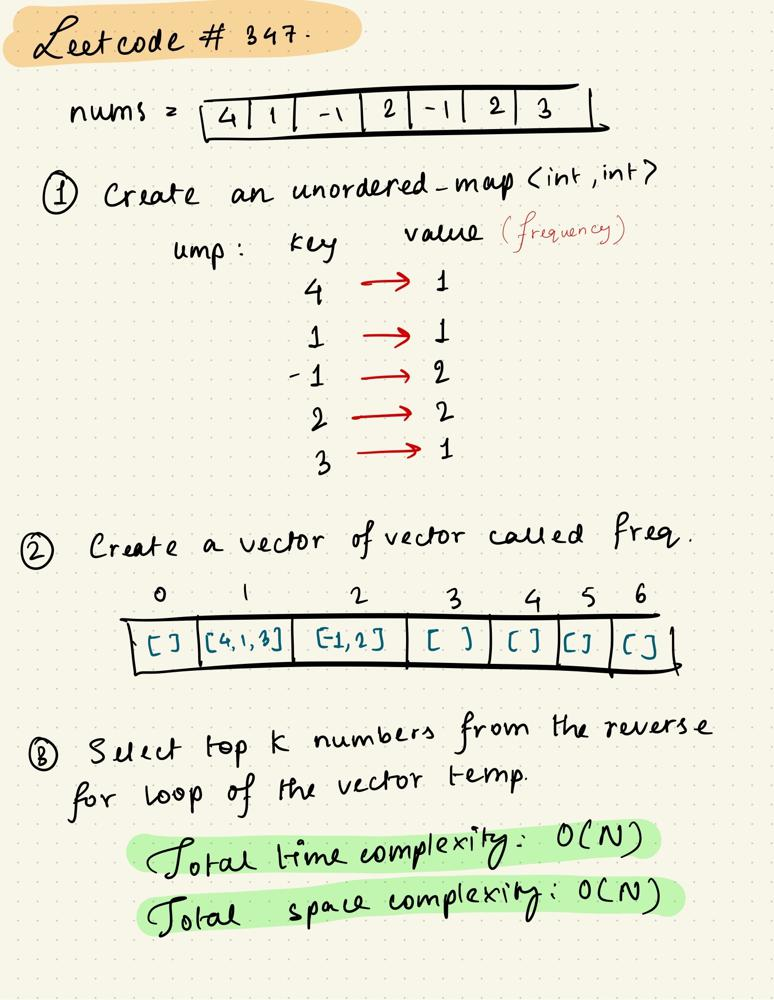 Leetcode # 347.
nums = 4 1 -1 2 -1 2 3
① Create an unordered_map <int, int>
ump : key value (frequency)
4 → 1
1 → 1
-1 → 2
2 → 2
3 → 1
② Create a vector of vector called freq.
0 1 2 3 4 5 6
[ ] [4,1,3] [-1,2] [ ] [ ] [ ] [ ]
③ Select top K numbers from the reverse
for loop of the vector temp.
Total time complexity: O(N)
Total space complexity: O(N)